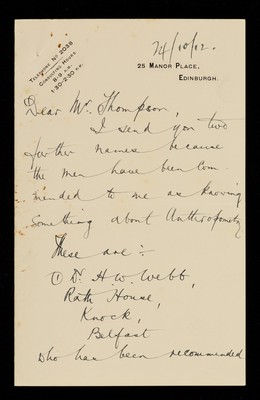 TELEPHONE NO 2038
CONSULTING HOURS
8-9 A.M.
1.30-2.30 P.M.
24/10/12.
25 MANOR PLACE,
EDINBURGH.
Dear Mr. Thompson,
I send you two
further names because
the men have been com-
mended to me as knowing
something about Anthropometry
These are :-
① Dr. H. W. Webb,
Rath House,
Knock,
Belfast
who has been recommended